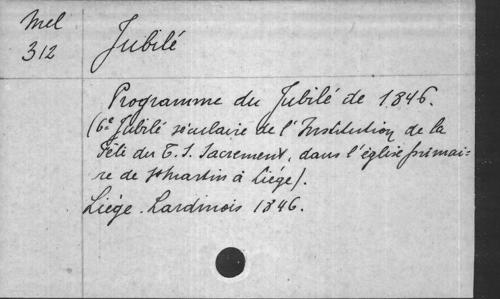 Mel
312
Jubilé
Programme du Jubilé de 1846.
(6e Jubilé séculaire de l'Institution de la
Fête du T. S. Sacrement, dans l'église primai-
re de St Martin à Liége).
Liége. Lardinois 1846.